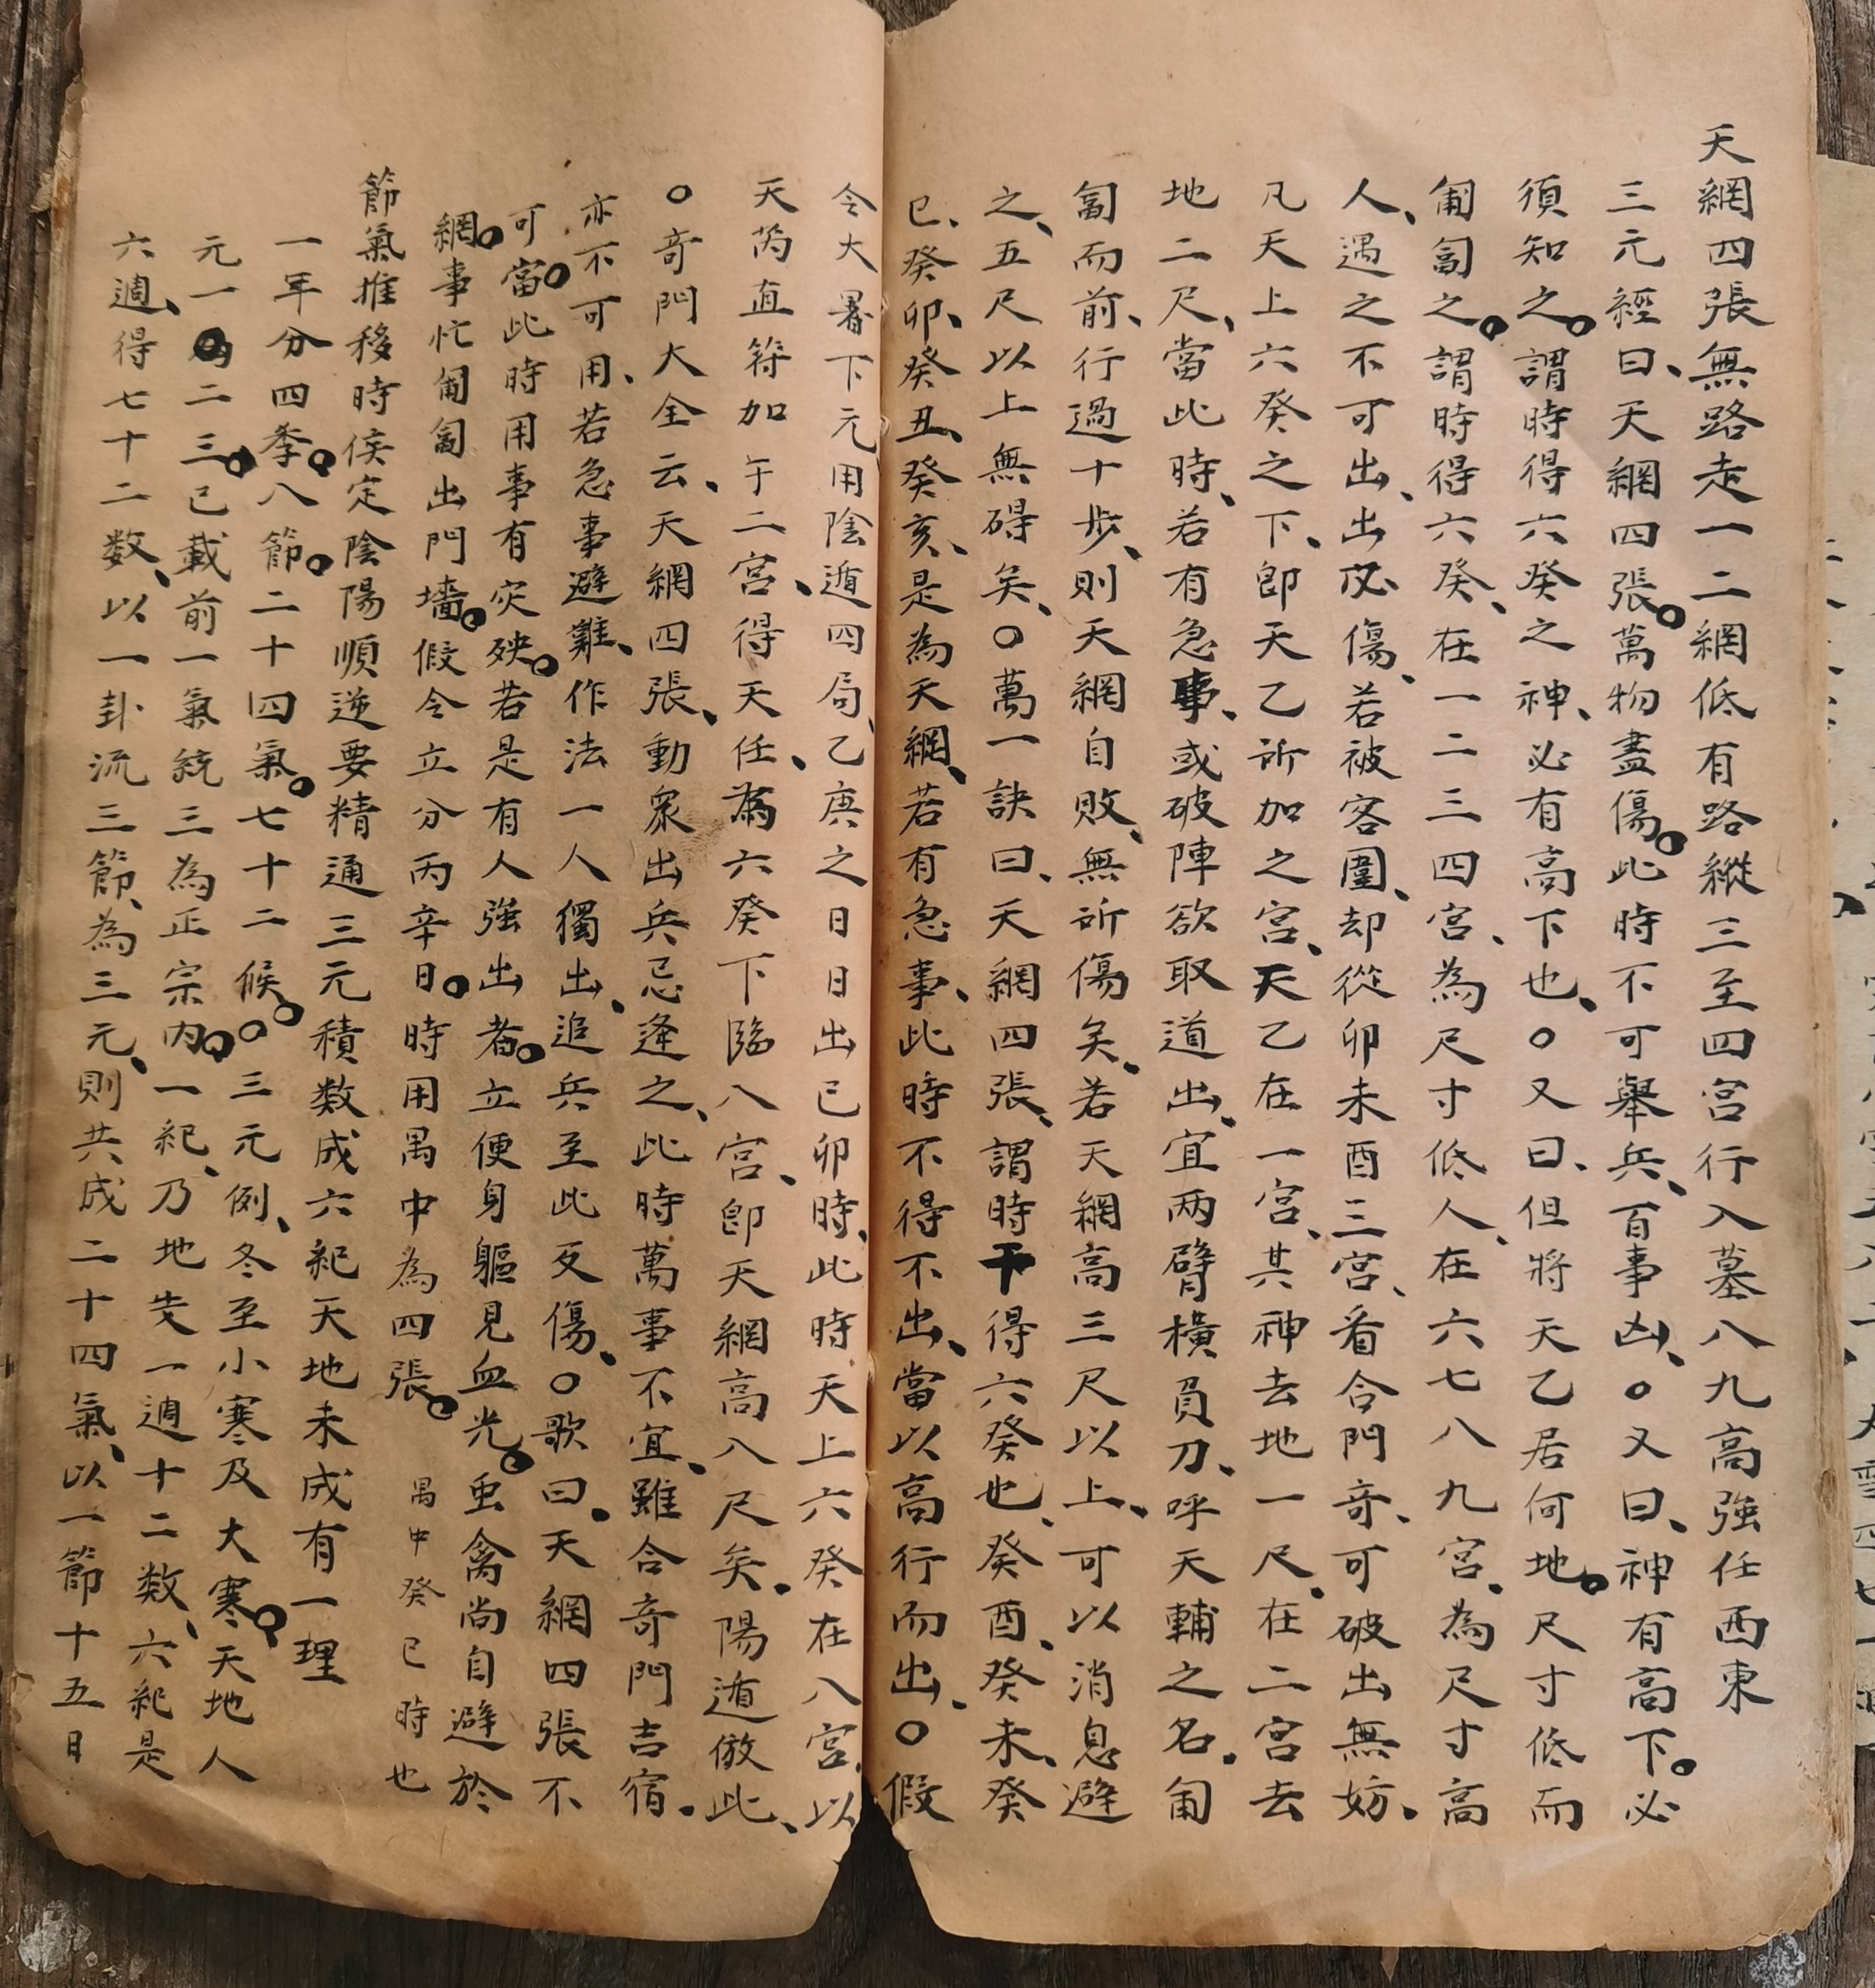 天網四張無路走一二網低有路縱三至四宮行入墓八九高強任西東
三元經曰、天網四張。萬物盡傷。此時不可舉兵、百事凶、○又曰、神有高下。必
須知之。謂時得六癸之神、必有高下也、○又曰、但將天乙居何地。尺寸低而
匍匐之。謂時得六癸、在一二三四宮、為尺寸低人、在六七八九宮、為尺寸高
人、遇之不可出、出必傷、若被客圍、却從卯未酉三宮、看合門奇、可破出無妨、
凡天上六癸之下、即天乙所加之宮、天乙在一宮、其神去地一尺、在二宮去
地二尺、當此時、若有急事、或破陣欲取道出、宜两臂橫負刀、呼天輔之名、匍
匐而前、行過十步、則天網自敗、無所傷矣、若天網高三尺以上、可以消息避
之、五尺以上無碍矣、○萬一訣曰、天網四張、謂時干得六癸也、癸酉、癸未、癸
巳、癸卯、癸丑、癸亥、是為天網、若有急事、此時不得不出、當以高行而出、○假
令大暑下元用陰遁四局、乙庚之日日出己卯時、此時天上六癸在八宮、以
天芮直符加于二宮、得天任、為六癸下臨八宮、即天網高八尺矣、陽遁倣此、
○奇門大全云、天網四張、動衆出兵忌逢之、此時萬事不宜、雖合奇門吉宿、
亦不可用、若急事避難、作法一人獨出、追兵至此反傷、○歌曰、天網四張不
可當。此時用事有灾殃。若是有人強出者。立便身軀見血光。虫禽尚自避於
網。事忙匍匐出門墻。假令立分丙辛日。時用禺中為四張。 禺中癸巳時也
節氣推移時侯定陰陽順逆要精通三元積数成六紀天地未成有一理
一年分四季。八節。二十四氣。七十二候。○三元例、冬至小寒及大寒。天地人
元一二三。已載前一氣統三為正宗内。一紀、乃地支一週十二数、六紀是
六週、得七十二数、以一卦流三節、為三元、則共成二十四氣、以一節十五日